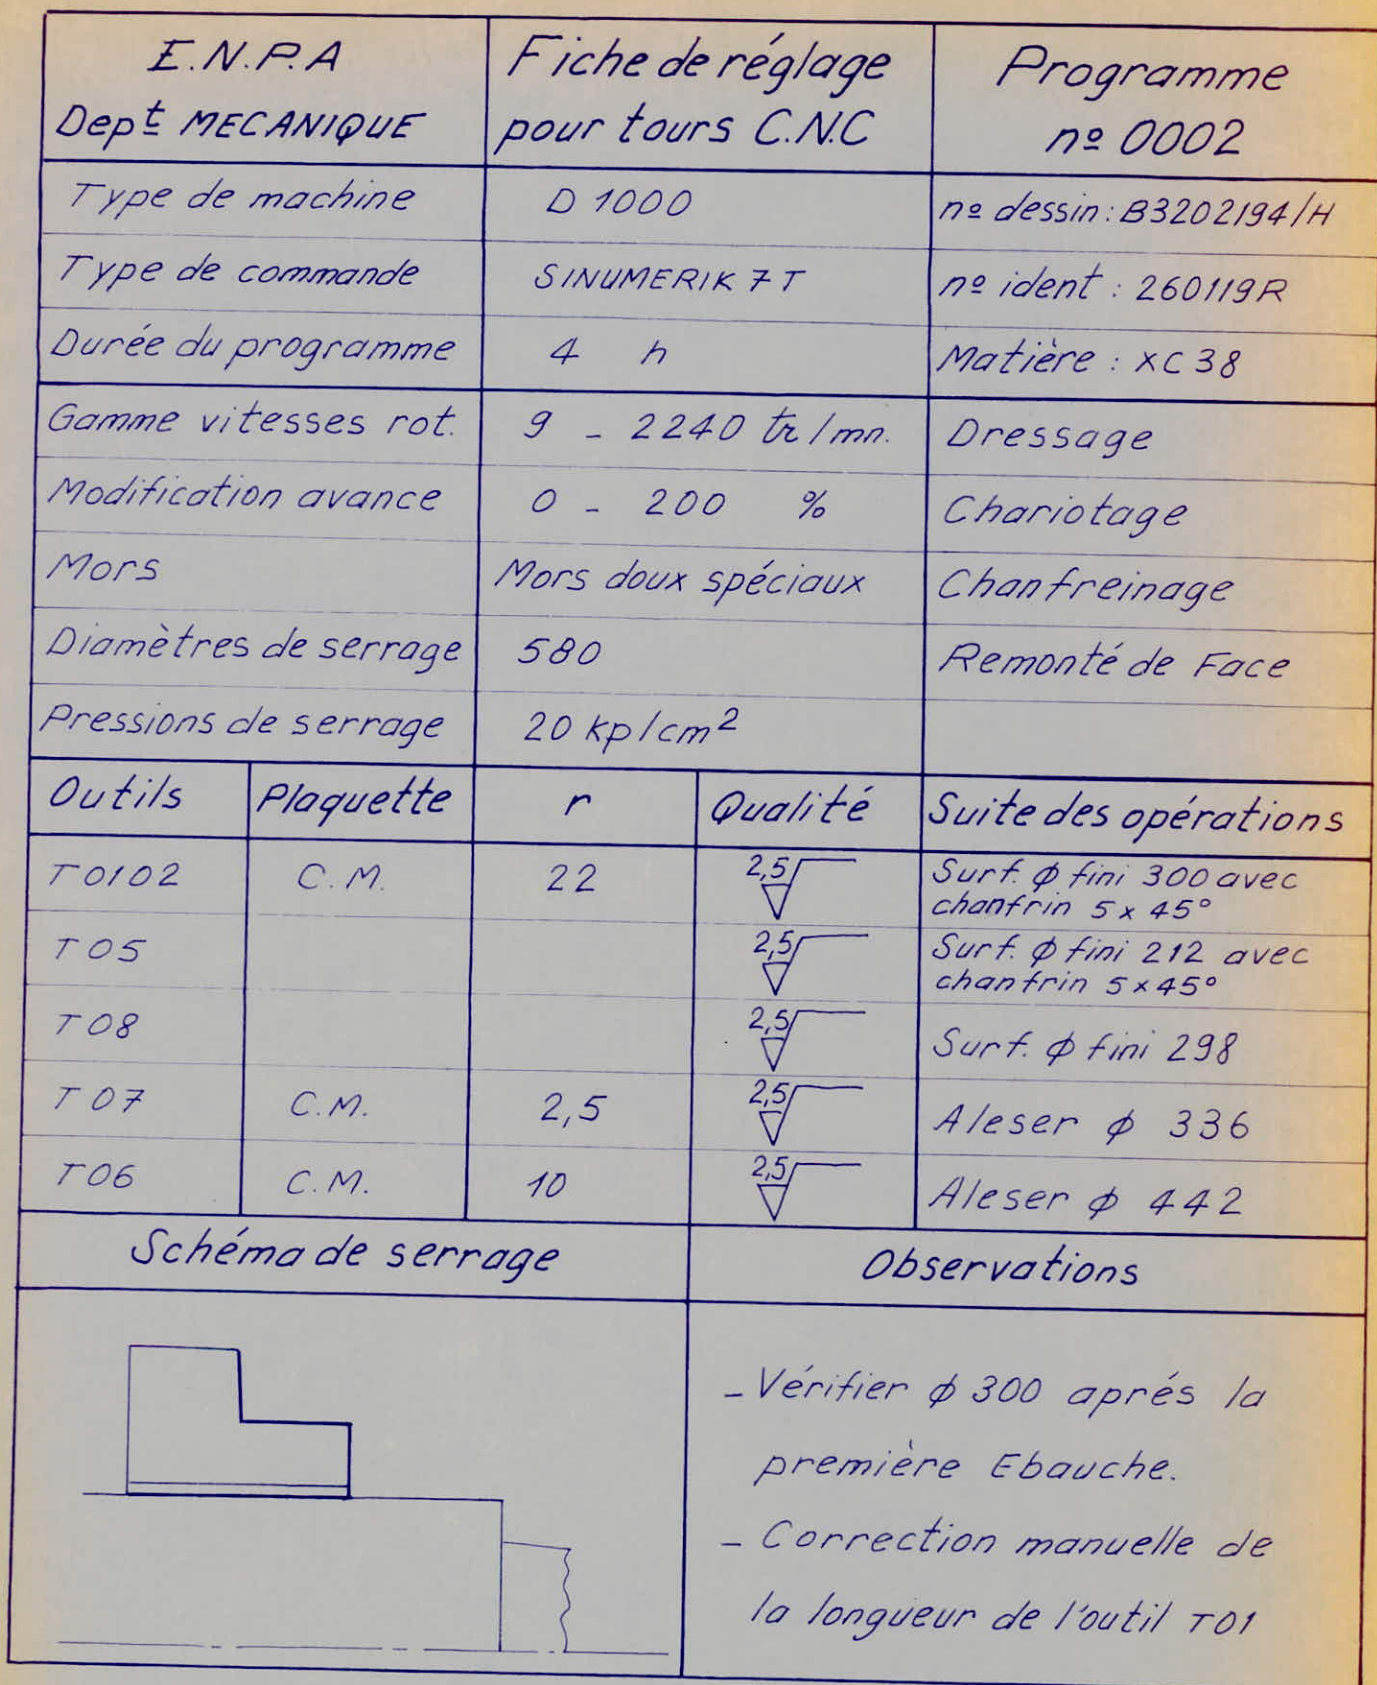 E.N.P.A
Dept MECANIQUE
Fiche de réglage
pour tours C.N.C
Programme
nº 0002
Type de machine
D 1000
nº dessin : B3202194/H
Type de commande
SINUMERIK 7 T
nº ident : 260119R
Durée du programme
4 h
Matière : XC 38
Gamme vitesses rot.
9 - 2240 tr/mn.
Dressage
Modification avance
0 - 200 %
Chariotage
Mors
Mors doux spéciaux
Chanfreinage
Diamètres de serrage
580
Remonté de Face
Pressions de serrage
20 kp/cm²
Outils
Plaquette
r
Qualité
Suite des opérations
T0102
C.M.
22
2,5
Surf. ϕ fini 300 avec
chanfrin 5 x 45°
T05
2,5
Surf. ϕ fini 212 avec
chanfrin 5 x 45°
T08
2,5
Surf. ϕ fini 298
T07
C.M.
2,5
2,5
Aleser ϕ 336
T06
C.M.
10
2,5
Aleser ϕ 442
Schéma de serrage
Observations
- Vérifier ϕ 300 aprés la
première Ebauche.
- Correction manuelle de
la longueur de l'outil T01